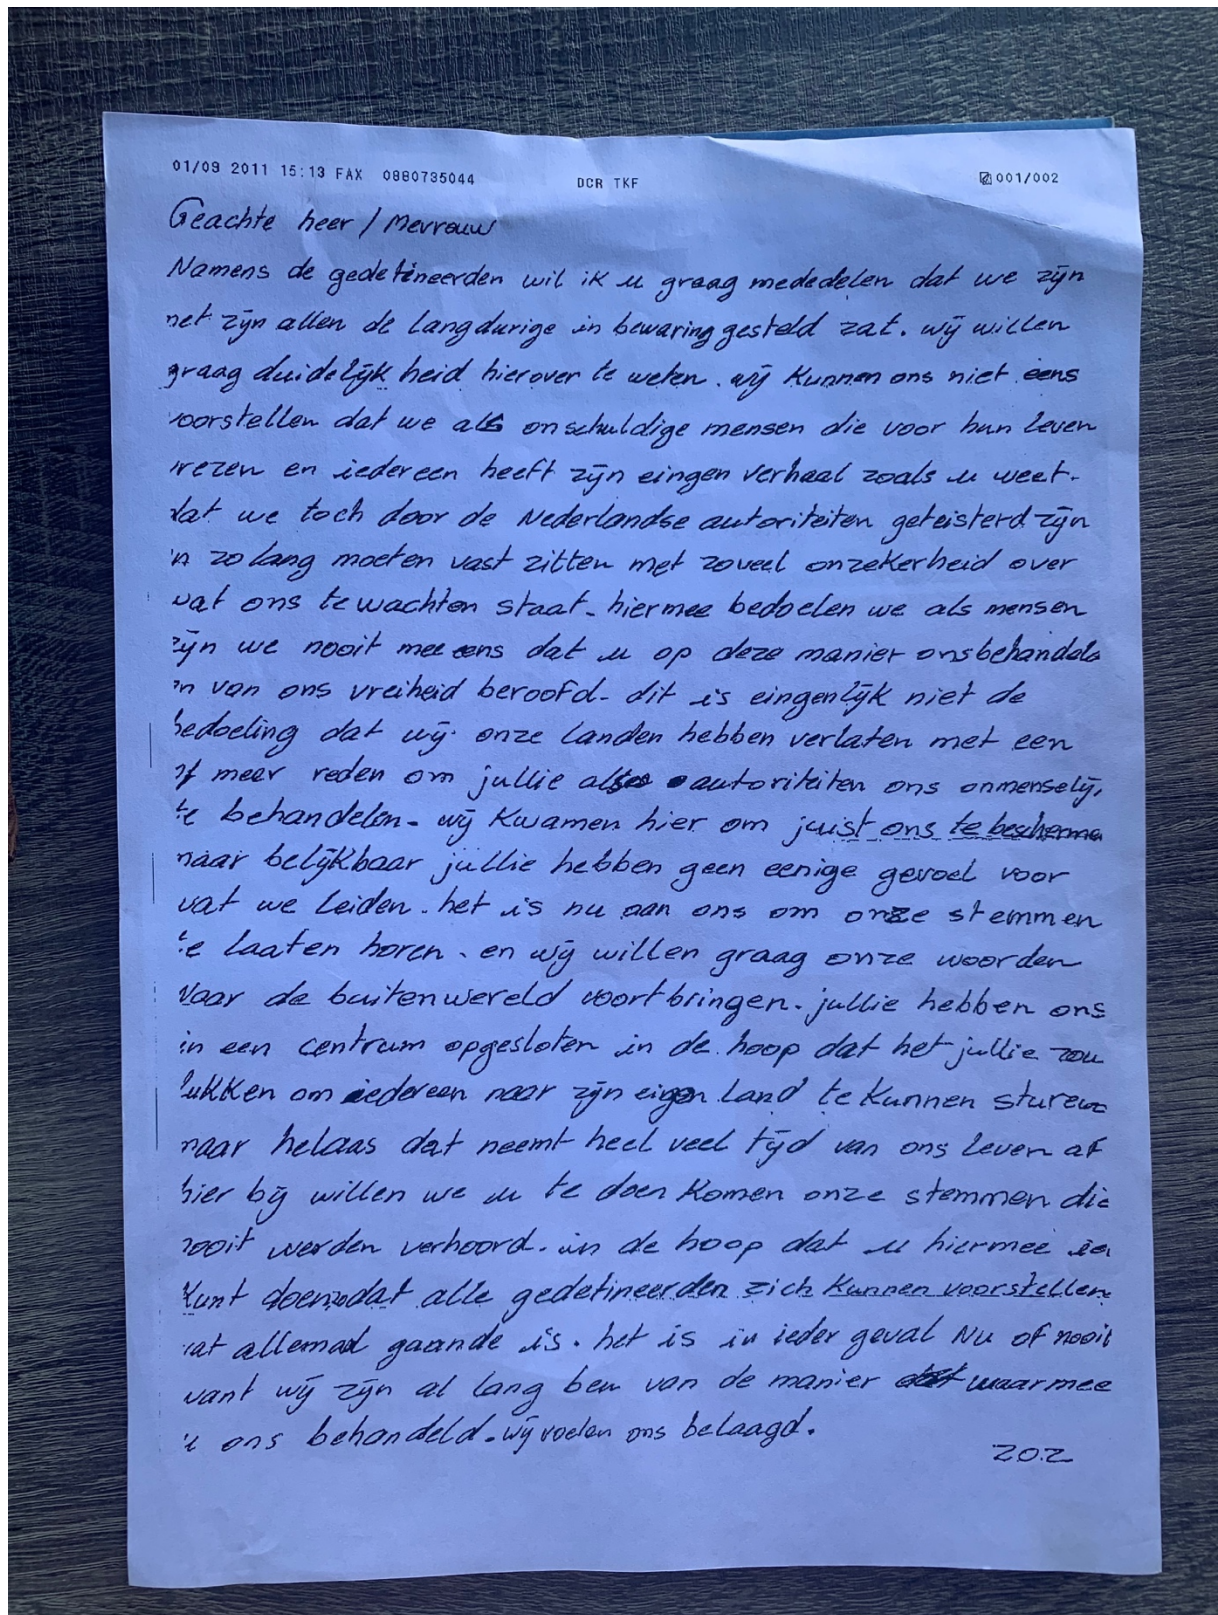 01/09 2011 15:13 FAX 0880735044 DCR TKF 001/002
Geachte heer / Mevrouw
Namens de gedetineerden wil ik u graag mededelen dat we zijn
net zijn allen de langdurige in bewaring gesteld zat. wij willen
graag duidelijkheid hierover te weten. wij kunnen ons niet eens
voorstellen dat we als onschuldige mensen die voor hun leven
vrezen en iedereen heeft zijn eingen verhaal zoals u weet.
dat we toch door de Nederlandse autoriteiten geteisterd zijn
'n zo lang moeten vast zitten met zoveel onzekerheid over
wat ons te wachten staat. hiermee bedoelen we als mensen
zijn we nooit mee eens dat u op deze manier ons behandeld
en van ons vreiheid beroofd. dit is eingenlijk niet de
bedoeling dat wij onze landen hebben verlaten met een
of meer reden om jullie als autoriteiten ons onmenselij
te behandelen. wij kwamen hier om juist ons te bescherme
maar belijkbaar jullie hebben geen eenige gevoel voor
wat we leiden. het is nu aan ons om onze stemmen
te laaten horen. en wij willen graag onze woorden
naar de buitenwereld voortbringen. jullie hebben ons
in een centrum opgesloten in de hoop dat het jullie zou
lukken om iedereen naar zijn eigen land te kunnen sturen
maar helaas dat neemt heel veel tijd van ons leven af
hier bij willen we u te doen komen onze stemmen die
nooit werden verhoord. in de hoop dat u hiermee
kunt doen zodat alle gedetineerden zich kunnen voorstellen
wat allemaal gaande is. het is in ieder geval NU of nooit
want wij zijn al lang beu van de manier waarmee
u ons behandeld. wij voelen ons belaagd.
Z.O.Z